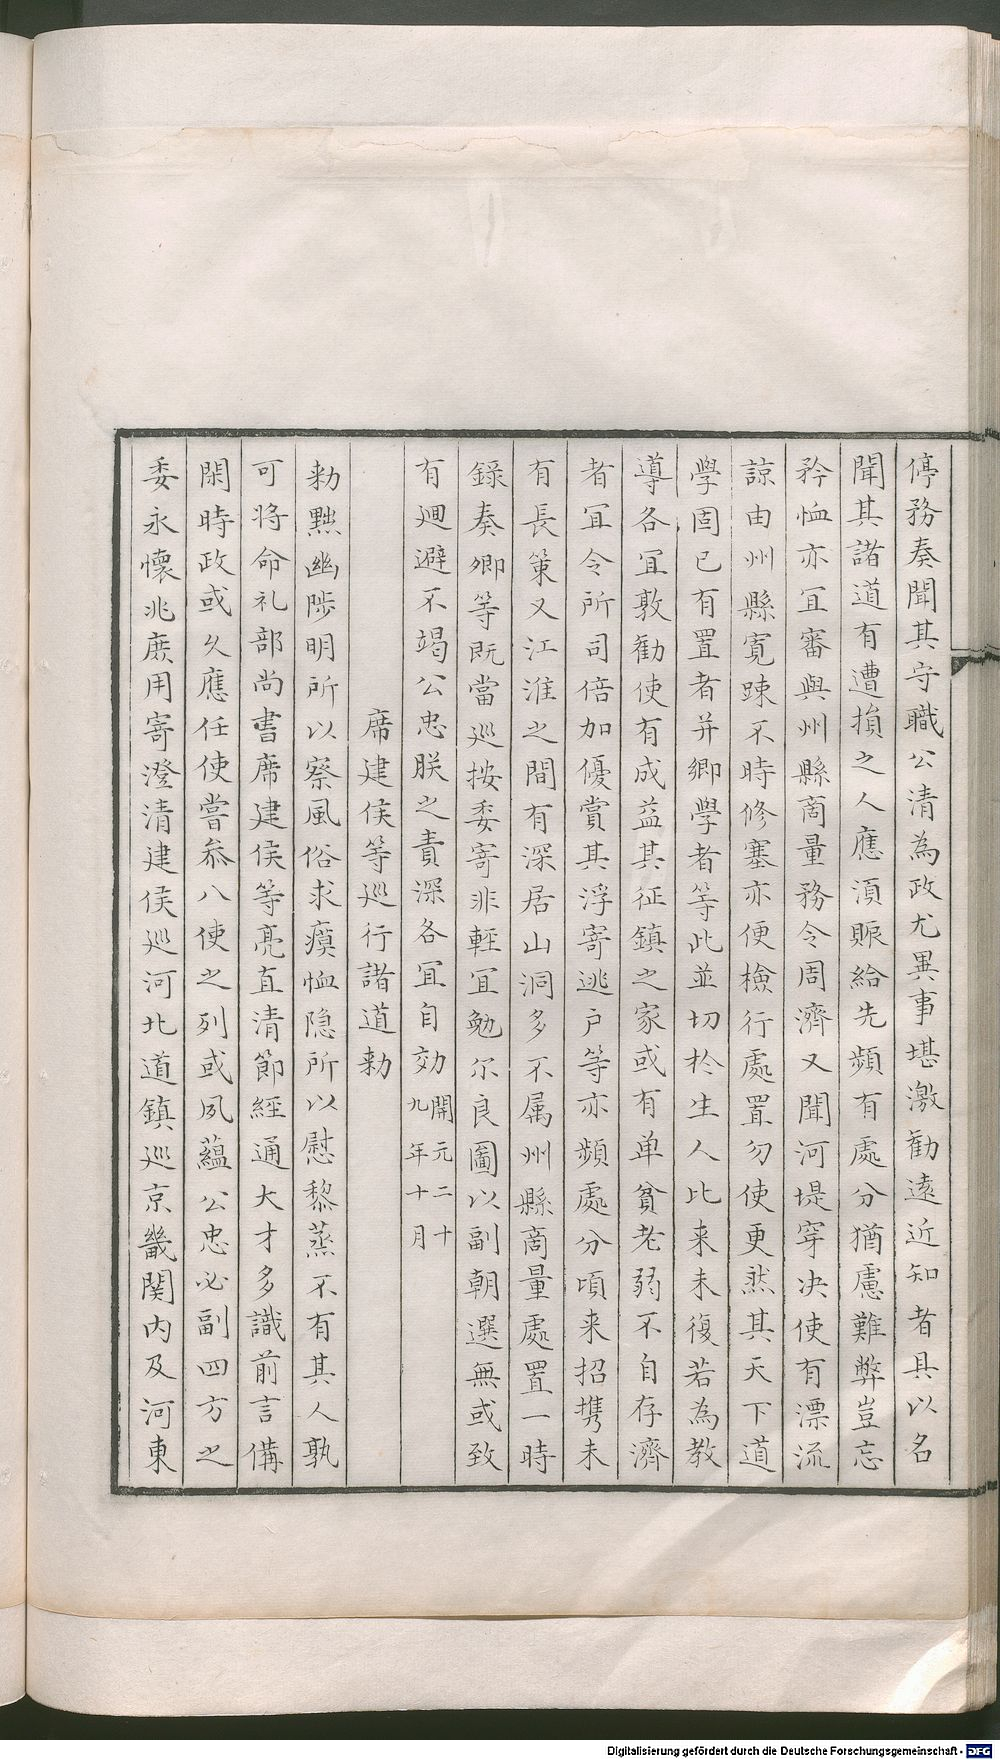 停務奏聞其守職公清為政尤異事堪激勸遠近知者具以名
聞其諸道有遭損之人應湏賑給先頻有處分猶慮難弊豈忘
矜恤亦冝審與州縣商量務令周濟又聞河堤穿决使有漂流
諒由州縣寛踈不時修塞亦便檢行處置勿使更然其天下道
學固已有置者并鄉學者等此並切於生人比来未復若為教
導各冝敦勸使有成益其征鎮之家或有单貧老弱不自存濟
者冝令所司倍加優賞其浮寄逃户等亦頻處分頃来招携未
有長策又江淮之間有深居山洞多不属州縣商量處置一時
録奏卿等既當巡按委寄非輕冝勉尔良圖以副朝選無或致
有迴避不竭公忠朕之責深各冝自効開元二十九年十月
席建侯等巡行諸道勑
勑黜幽陟明所以察風俗求瘼恤隐所以慰黎蒸不有其人孰
可将命礼部尚書席建侯等亮直清節經通大才多識前言備
閑時政或久應任使嘗叅八使之列或夙蘊公忠必副四方之
委永懷兆庶用寄澄清建侯巡河北道鎮巡京畿関内及河東
Digitalisierung gefördert durch die Deutsche Forschungsgemeinschaft - DFG